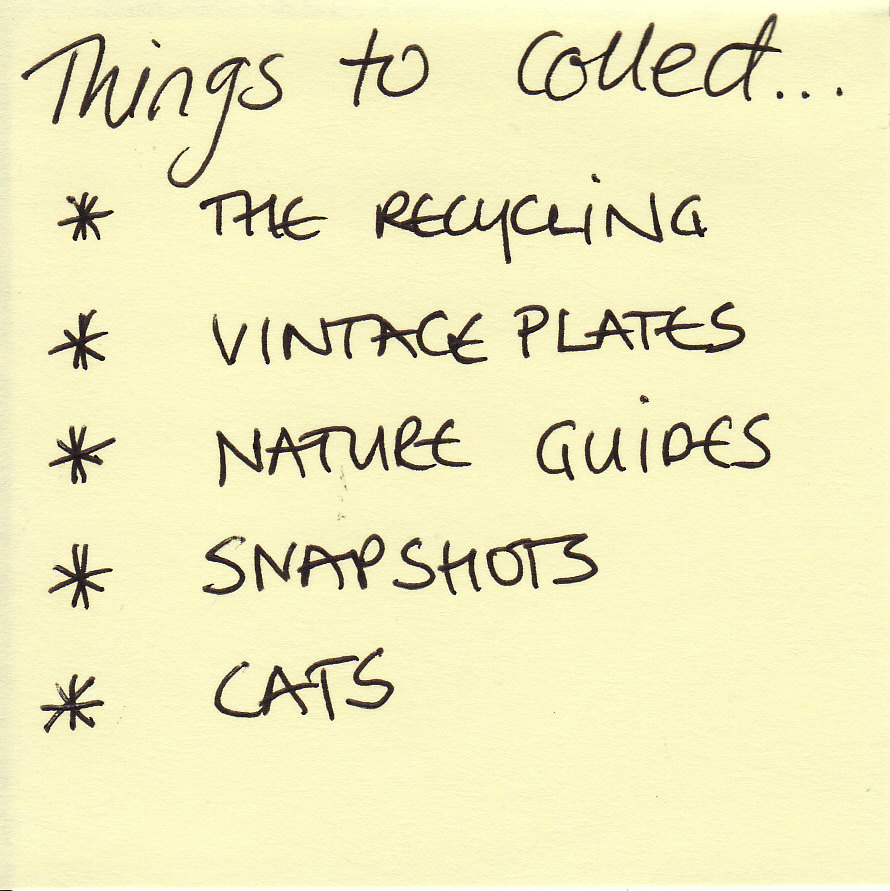 Things to collect...
* THE RECYCLING
* VINTAGE PLATES
* NATURE GUIDES
* SNAPSHOTS
* CATS